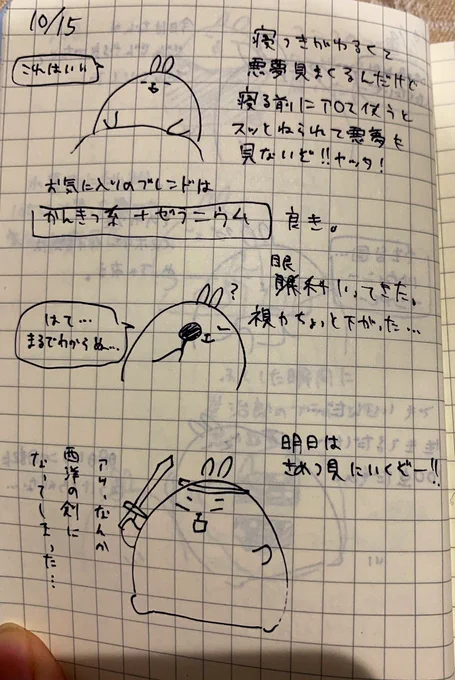 10/15
これはいい
寝つきがわるくて
悪夢見まくるんだけど
寝る前にアロマ使うと
スッとねられて悪夢も
見ないぞ!!ヤッタ!
お気に入りのブレンドは
かんきつ系+ゼラニウム 良き。
眼科いってきた。
視力ちょっと下がった…
?
はて…
まるでわからぬ…
明日は
きめつ見にいくぞー!!
アッ、なんか
西洋の剣に
なってしまった…